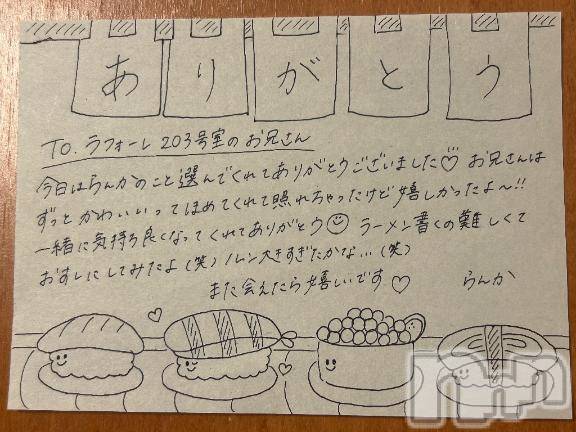 ありがとう
To. ラフォーレ 203号室のお兄さん
今日はらんかのこと選んでくれてありがとうございました♡ お兄さんは
ずっとかわいいってほめてくれて照れちゃったけど嬉しかったよ〜!!
一緒に気持ち良くなってくれてありがとう☺ ラーメン書くの難しくて
おすしにしてみたよ(笑) ノレン大きすぎたかな…(笑)
また会えたら嬉しいです♡ らんか